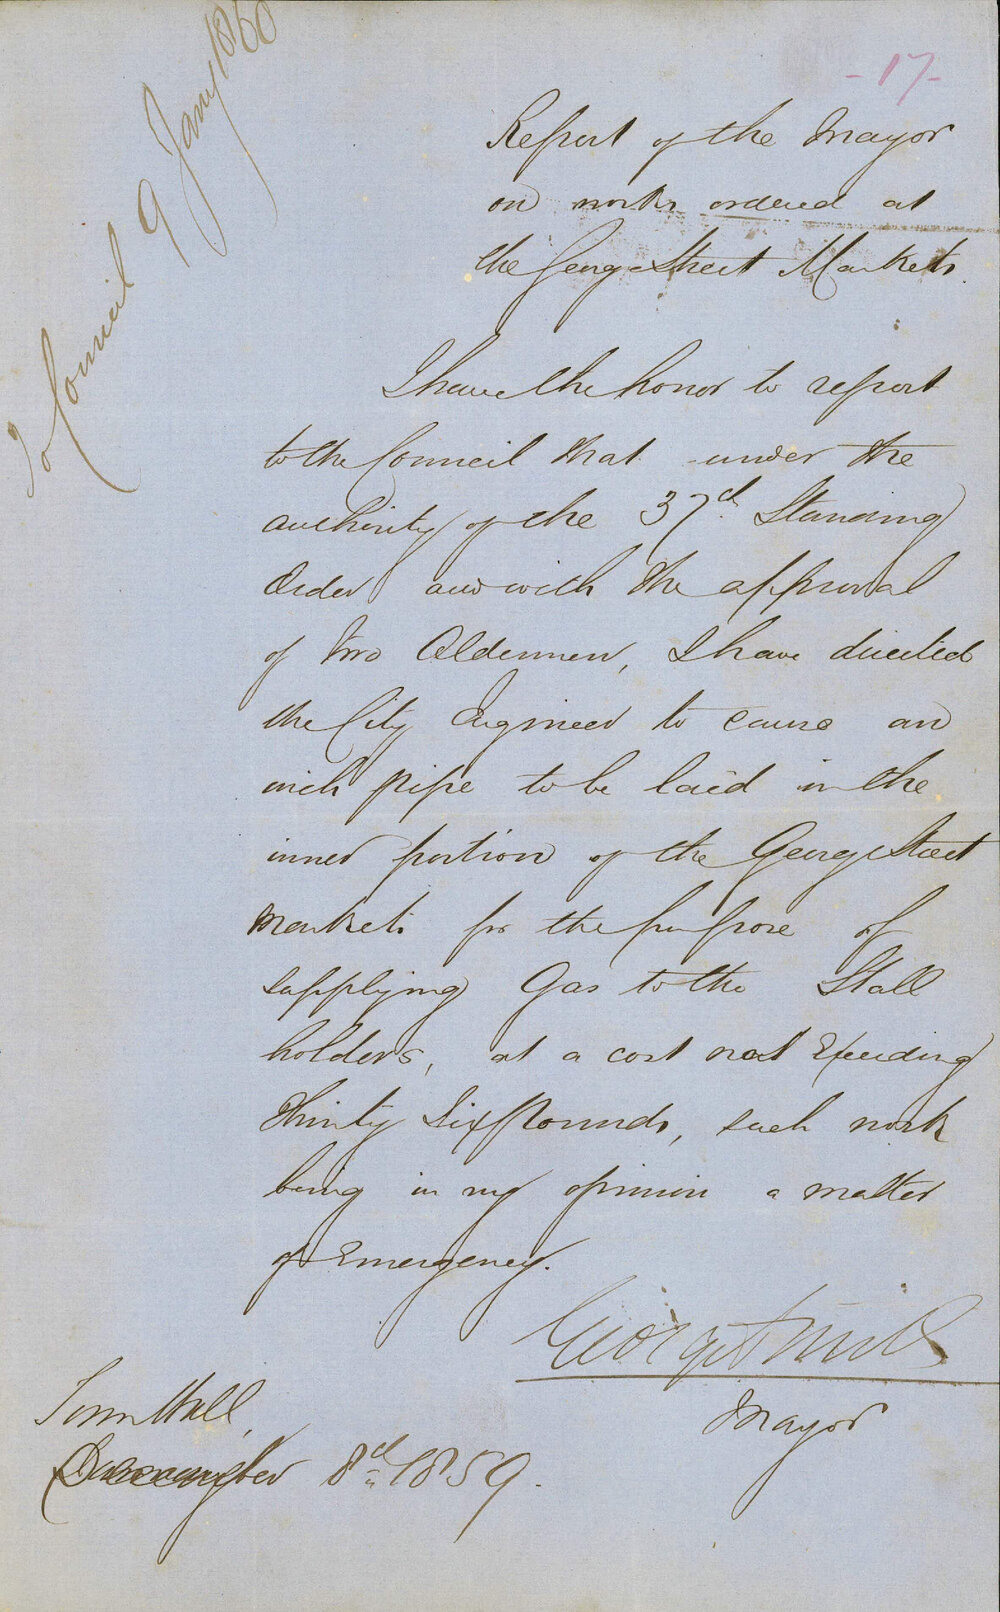 - 17 -
To Council 9 Jany 1860
Report of the Mayor
on works ordered at
the George Street Markets.
I have the honor to report
to the Council that under the
authority of the 37th Standing
Order and with the approval
of two Aldermen, I have directed
the City Engineer to cause an
inch pipe to be laid in the
inner portion of the George Street
Markets for the purpose of
supplying Gas to the Stall
holders, at a cost not Exceeding
Thirty Six Pounds, such work
being in my opinion a matter
of Emergency.
George Smith
Mayor
Town Hall,
8th 1859.